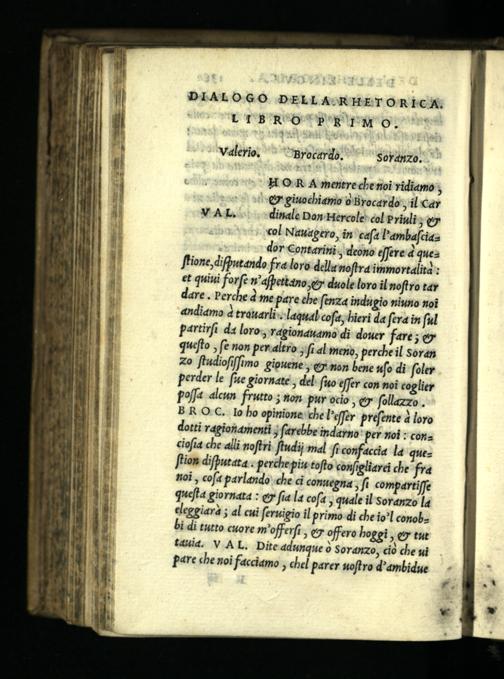 DIALOGO DELLA RHETORICA.
LIBRO PRIMO.
Valerio. Brocardo. Soranzo.
HORA mentre che noi ridiamo,
& giuochiamo ò Brocardo, il Car
VAL. dinale Don Hercole col Priuli, &
col Nauagero, in casa l'ambascia=
dor Contarini, deono essere à que=
stione, disputando fra loro della nostra immortalità:
et quiui forse n'aspettano, & duole loro il nostro tar
dare. Perche à me pare che senza indugio niuno noi
andiamo à trouarli. laqual cosa, hieri da sera in sul
partirsi da loro, ragionauamo di douer fare; &
questo, se non per altro, si al meno, perche il Soran
zo studiosissimo giouene, & non bene uso di soler
perder le sue giornate, del suo esser con noi coglier
possa alcun frutto; non pur ocio, & sollazzo.
BROC. Io ho opinione che l'esser presente à loro
dotti ragionamenti, sarebbe indarno per noi: con=
ciosia che alli nostri studij mal si confaccia la que=
stion disputata. perche piu tosto consigliarei che fra
noi, cosa parlando che ci conuegna, si compartisse
questa giornata: & sia la cosa, quale il Soranzo la
eleggiarà; al cui seruigio il primo di che io'l conob=
bi di tutto cuore m'offersi, & offero hoggi, & tut
tauia. VAL. Dite adunque ò Soranzo, ciò che ui
pare che noi facciamo, chel parer uostro d'ambidue